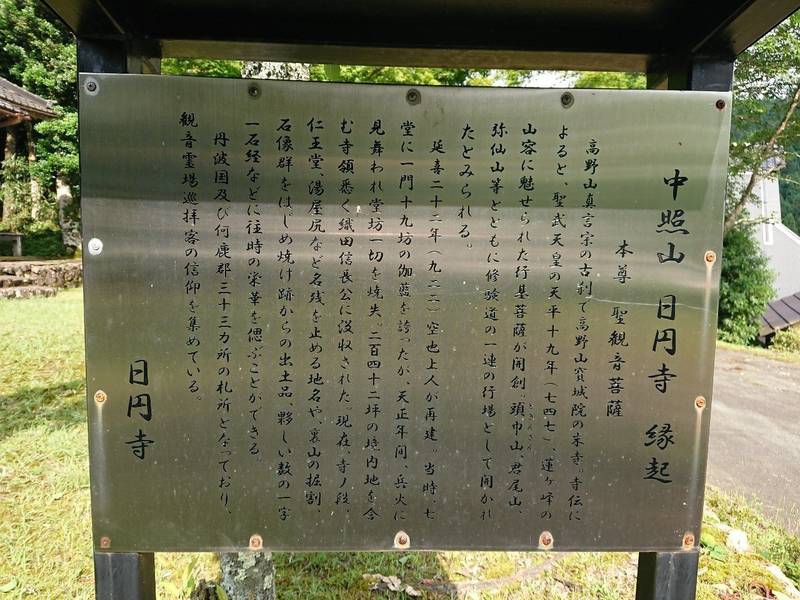 中照山 日円寺 縁起
本尊 聖観音菩薩
高野山真言宗の古刹で高野山宝城院の末寺。寺伝に
よると、聖武天皇の天平十九年（七四七）、蓮ヶ峰の
山容に魅せられた行基菩薩が開創。頭巾山、君尾山、
弥仙山等とともに修験道の一連の行場として開かれ
たとみられる。
延喜二十二年（九二二）空也上人が再建。当時、七
堂に一門十九坊の伽藍を誇ったが、天正年間、兵火に
見舞われ堂坊一切を焼失。二百四十二坪の境内地を含
む寺領悉く織田信長公に没収された。現在、寺ノ段、
仁王堂、湯屋尻など名残を止める地名や、裏山の掘割、
石像群をはじめ焼け跡からの出土品、夥しい数の一字
一石経などに往時の栄華を偲ぶことができる。
丹波国及び何鹿郡三十三カ所の札所となっており、
観音霊場巡拝客の信仰を集めている。
日円寺